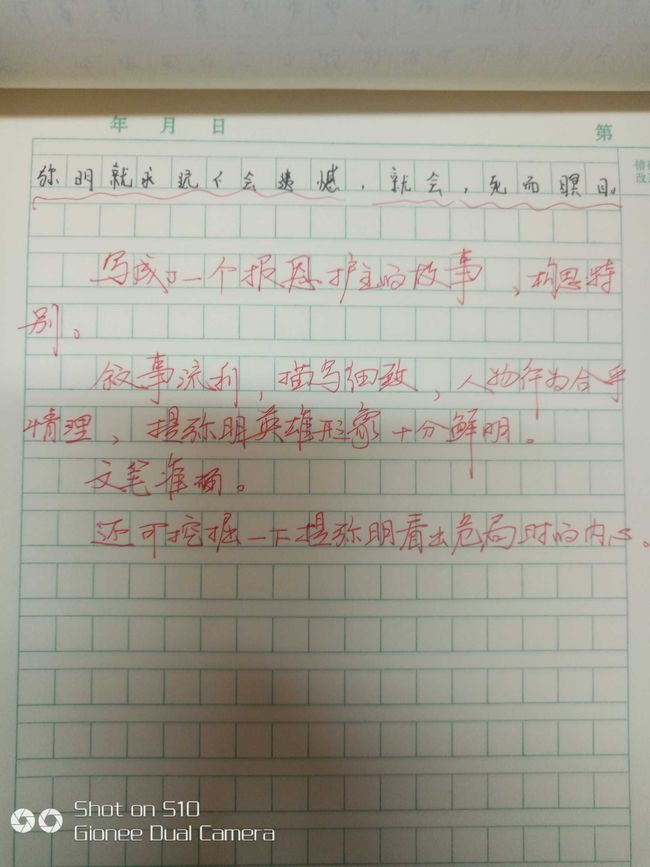 年 月 日 第
错别
改正
弥明就永远不会遗憾，就会，死而瞑目。
写成了一个报恩护主的故事，构思特
别。
叙事流利，描写细致，人物行为合乎
情理，提弥明英雄形象十分鲜明。
文笔准确。
还可挖掘一下提弥明看出危局时的内心。
Shot on S10
Gionee Dual Camera